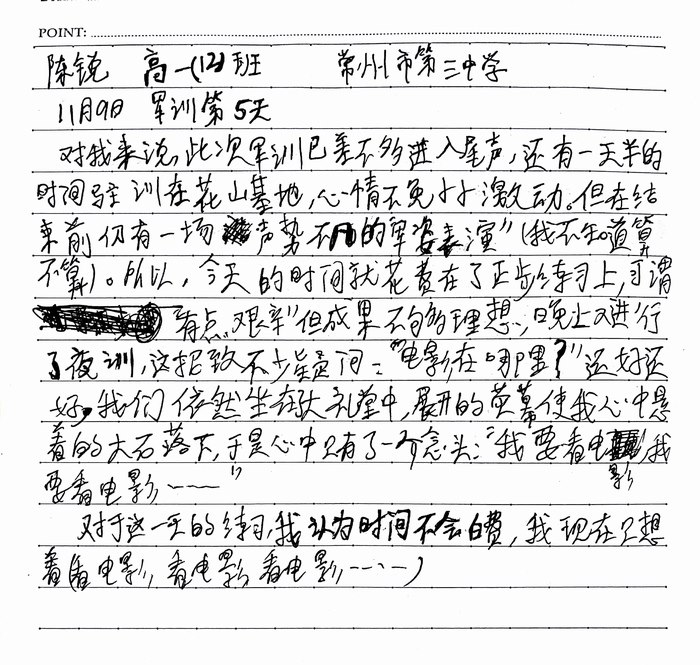 POINT:
陈锐 高一(12)班 常州市第三中学
11月9日 军训第5天
对我来说,此次军训已差不多进入尾声,还有一天半的
时间驻训在花山基地,心情不免小小激动。但在结
束前仍有一场声势不凡的军姿表演”(我不知道算
不算)。所以,今天的时间就花费在了正步练习上,可谓
“有点”艰辛”但成果不句多理想,晚上又进行
了夜训,这招致不少疑问:“电影在哪里?”还好还
好,我们依然坐在大礼堂中,展开的荧幕使我心中悬
着的大石落下,于是心中只有了一个念头:“我要看电影,我
要看电影……”
对于这一天的练习,我认为时间不会白费,我现在只想
看(看电影,看电影,看电影……)